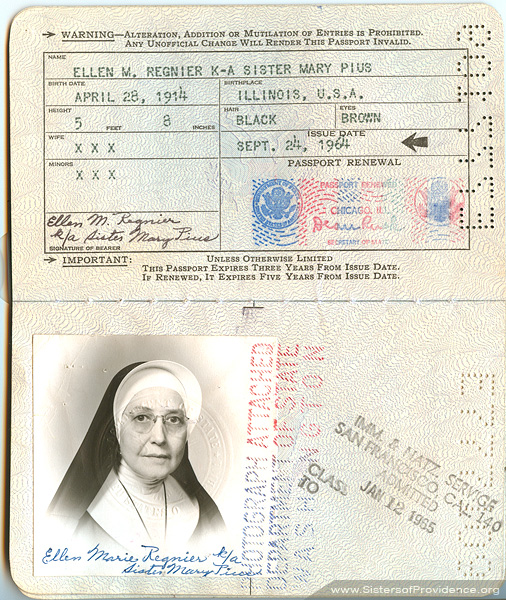 WARNING—ALTERATION, ADDITION OR MUTILATION OF ENTRIES IS PROHIBITED.
ANY UNOFFICIAL CHANGE WILL RENDER THIS PASSPORT INVALID.
NAME
ELLEN M. REGNIER K-A SISTER MARY PIUS
BIRTH DATE BIRTHPLACE
APRIL 28, 1914 ILLINOIS, U.S.A.
HEIGHT HAIR EYES
5 FEET 8 INCHES BLACK BROWN
WIFE ISSUE DATE
X X X SEPT. 24, 1964
MINORS PASSPORT RENEWAL
X X X
PASSPORT RENEWED
CHICAGO, ILL.
SECRETARY OF STATE
Ellen M. Regnier
k/a Sister Mary Pius
SIGNATURE OF BEARER
IMPORTANT: UNLESS OTHERWISE LIMITED
THIS PASSPORT EXPIRES THREE YEARS FROM ISSUE DATE.
IF RENEWED, IT EXPIRES FIVE YEARS FROM ISSUE DATE.
PHOTOGRAPH ATTACHED
DEPARTMENT OF STATE
WASHINGTON
IMM. & NATZ. SERVICE
SAN FRANCISCO, CAL. 140
ADMITTED
JAN 12 1965
CLASS
TO
Ellen Marie Regnier k/a
Sister Mary Pius
www.SistersofProvidence.org